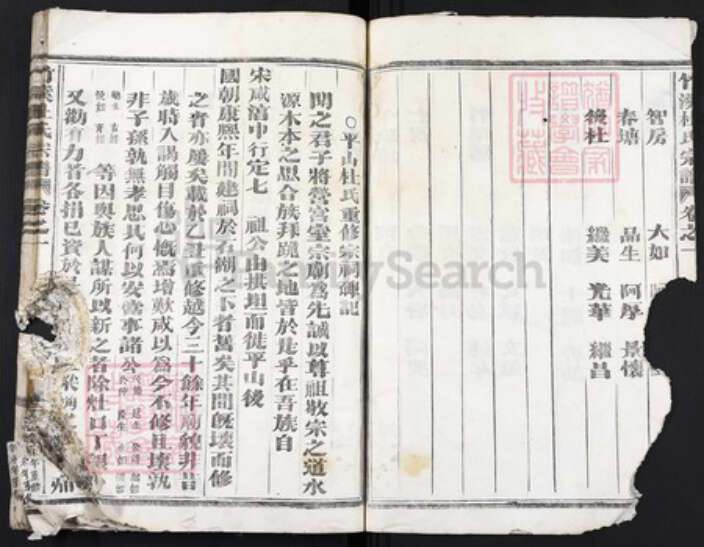 竹溪杜氏宗譜 卷之一
智房 大如
春塘 品生 阿厚 景懷
後杜 繼美 光華 繼昌
○平山杜氏重修宗祠碑記
聞之君子將營宮室宗廟爲先誠以尊祖敬宗之道水
源木本之思合族拜跪之地皆於是乎在吾族自
宋咸淳中行定七 祖公由拱坦而徙平山後
國朝康熙年間建祠於石湖之下者舊矣其間旣壞而修
之者亦屢矣載於乙 重修越今三十餘年廟貌非
歲時入謁觸目傷心慨焉增歎咸以爲今不修且壞孰
非子孫孰無孝思其何以安爲事諸公
等因與族人謀所以新之者除灶口丁
又勸有力者各捐己資於
竹溪杜氏宗譜 卷之一
FamilySearch